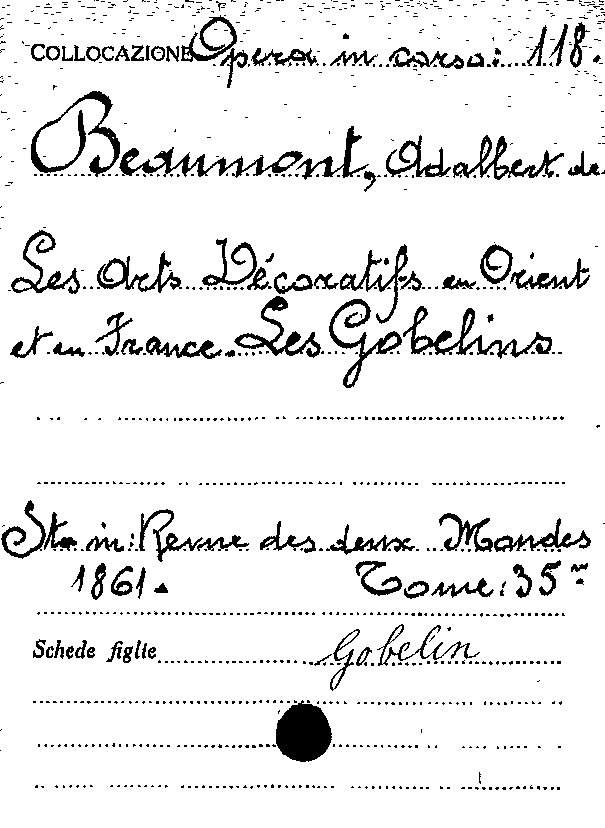 COLLOCAZIONE Opera in corso: 118.
Beaumont, Adalbert de
Les Arts Décoratifs en Orient
et en France. Les Gobelins
Sta in: Revue des deux Mondes
1861. Tome: 35me
Schede figlie Gobelin